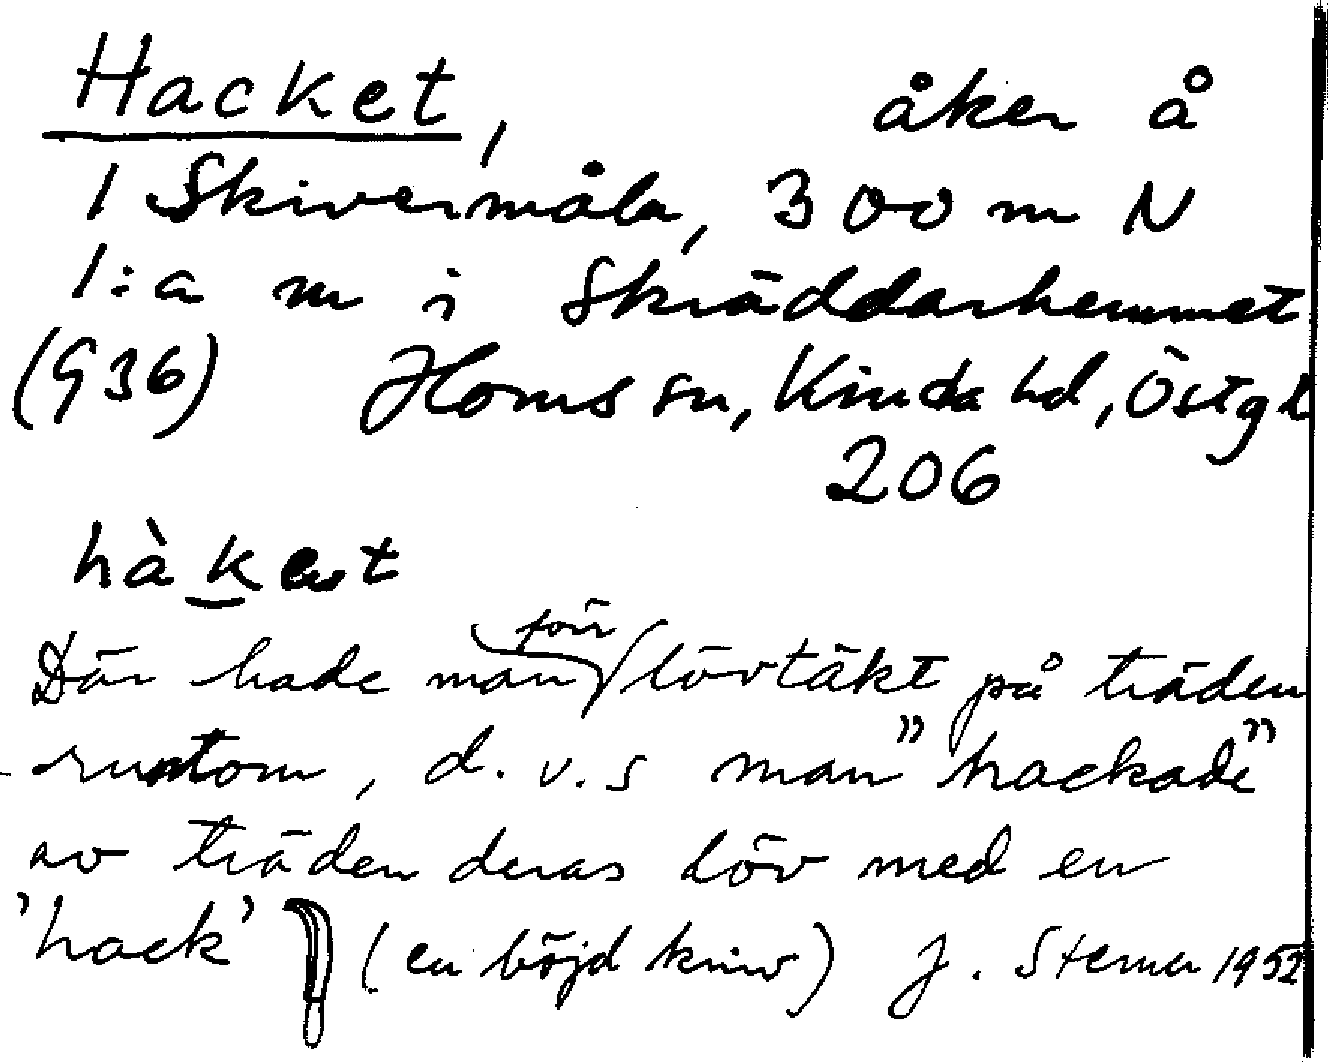 Hacket, åker å
1 Skivermåla, 300 m N
1:a m i Skräddarhemmet
(936) Horns sn, Kinda hd, Östgl
206
hàket
Där hade man förr lövtäkt på träden
runtom, d.v.s man "hackade"
av träden deras löv med en
'hack' (en böjd kniv) J. Sterner 1952